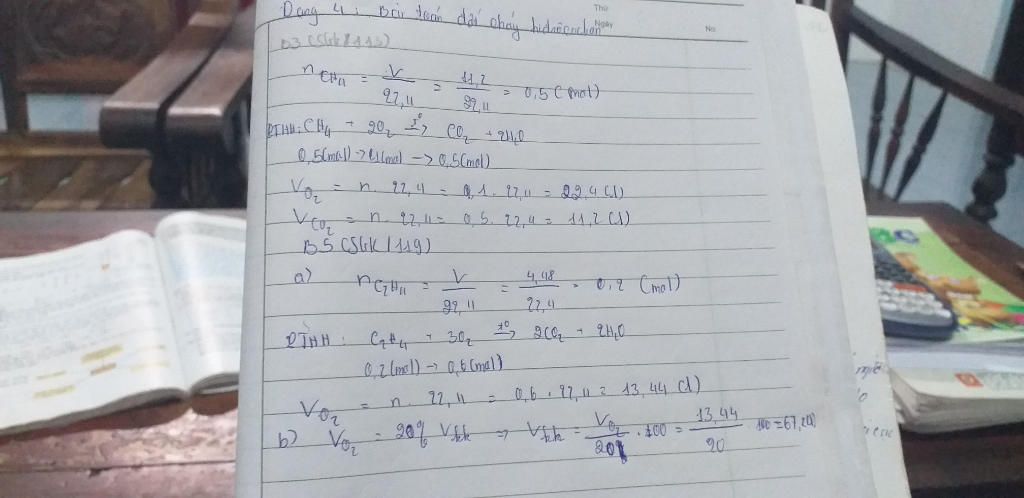 Thứ
Ngày
No
Dạng 4: Bài toán đốt cháy hiđrocacbon
B3 (SGK/113)
nCH4 = V/22,4 = 11,2/22,4 = 0,5 (mol)
PTHH: CH4 + 2O2 t°→ CO2 + 2H2O
0,5(mol) → 1(mol) → 0,5(mol)
VO2 = n. 22,4 = 0,1. 22,4 = 22,4 (l)
VCO2 = n. 22,4 = 0,5. 22,4 = 11,2 (l)
B5 (SGK/119)
a) nC2H4 = V/22,4 = 4,48/22,4 = 0,2 (mol)
PTHH: C2H4 + 3O2 t°→ 2CO2 + 2H2O
0,2(mol) → 0,6(mol)
VO2 = n. 22,4 = 0,6. 22,4 = 13,44 (l)
b) VO2 = 20% Vkk ⇒ Vkk = VO2/20 . 100 = 13,44/20 . 100 = 67,2(l)